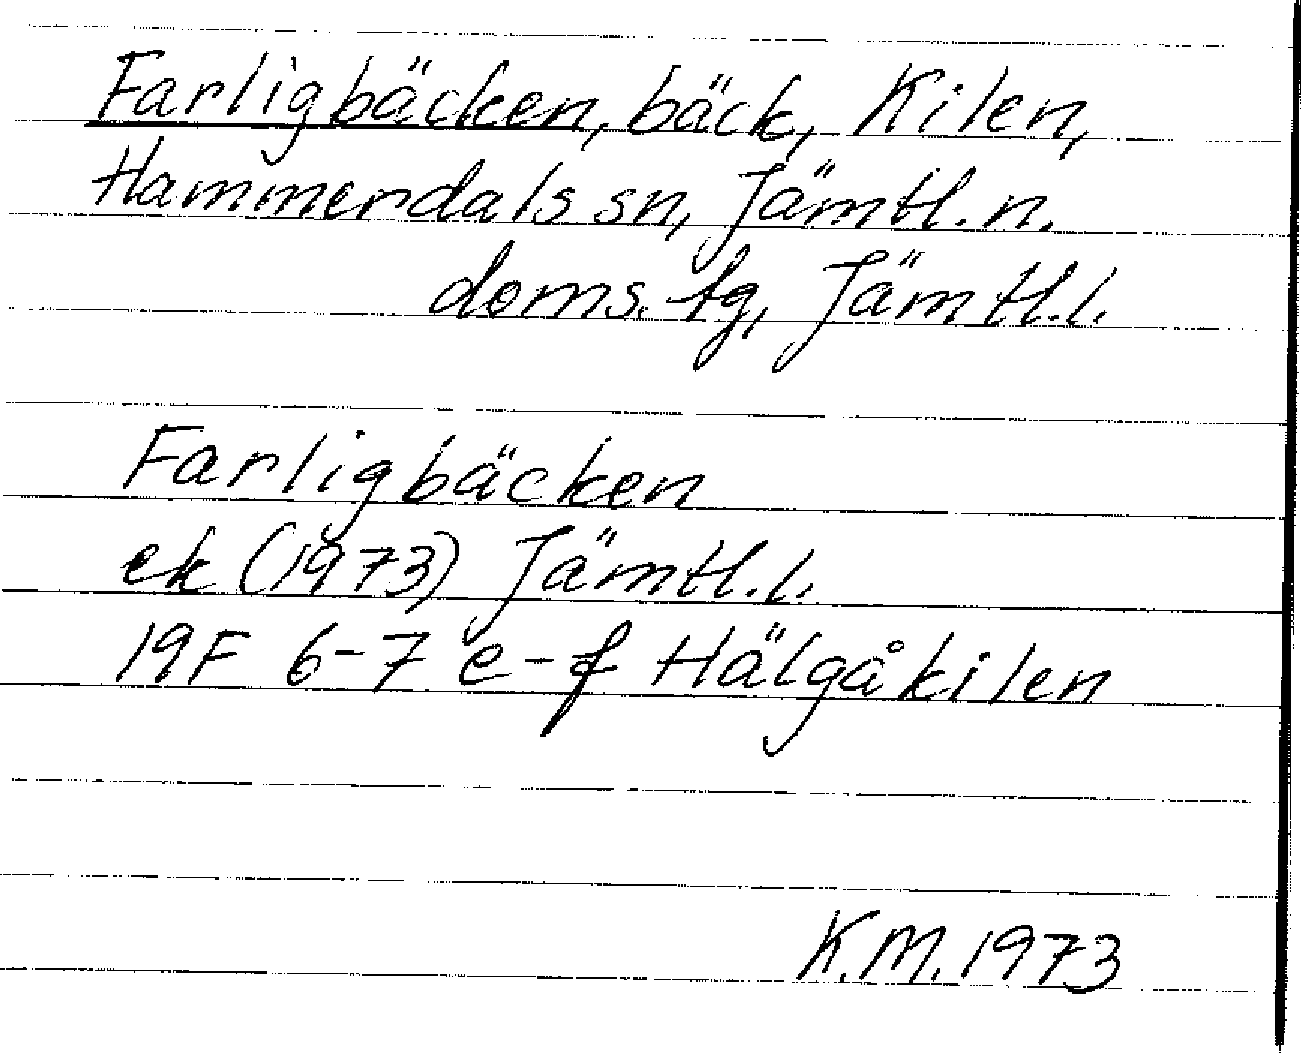 Farligbäcken, bäck, Kilen,
Hammerdals sn, Jämtl. n.
doms. tg, Jämtl. l.
Farligbäcken
ek (1973) Jämtl. l.
19F 6-7 e-f Hälgåkilen
K.M. 1973